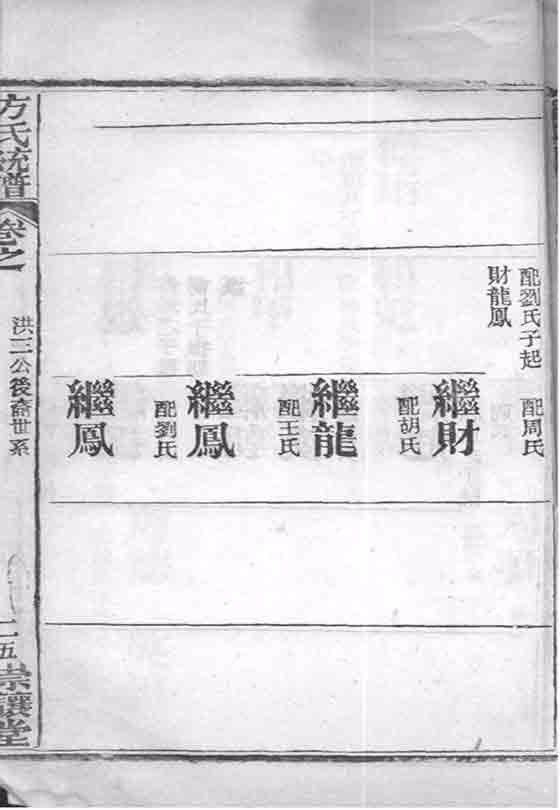 配劉氏子起
財龍鳳
配周氏
繼財
配胡氏
繼龍
配王氏
繼鳳
配劉氏
繼鳳
方氏統譜
卷之一
洪三公後裔世系
二五
崇讓堂